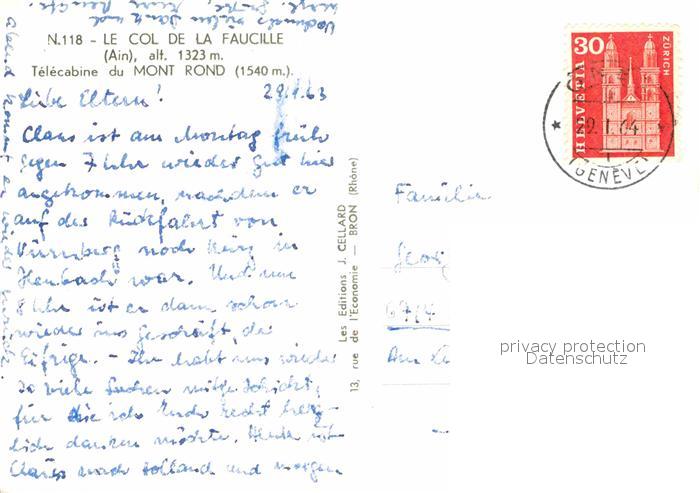 N.118 - LE COL DE LA FAUCILLE
(Ain), alt. 1323 m.
Télécabine du MONT ROND (1540 m.).
Liebe Eltern! 29.1.63
Claus ist am Montag früh
gegen 7 Uhr wieder gut hier
angekommen, nachdem er
auf der Rückfahrt von
Nürnberg noch kurz in
war. Und um
8 Uhr ist er dann schon
wieder ins Geschäft, der
Eifrige. - Ihr habt uns wieder
so viele Sachen mitgeschickt,
für die ich Euch recht herz-
lich danken möchte. Heute ist
Claus nach Holland und morgen
Abend kommt er wieder zurück.
Nochmals vielen Dank und
Les Editions J. CELLARD
13, rue de l'Economie — BRON (Rhône)
HELVETIA
30
ZÜRICH
29.1.64
GENÈVE
Familie
Georg
Am
privacy protection
Datenschutz